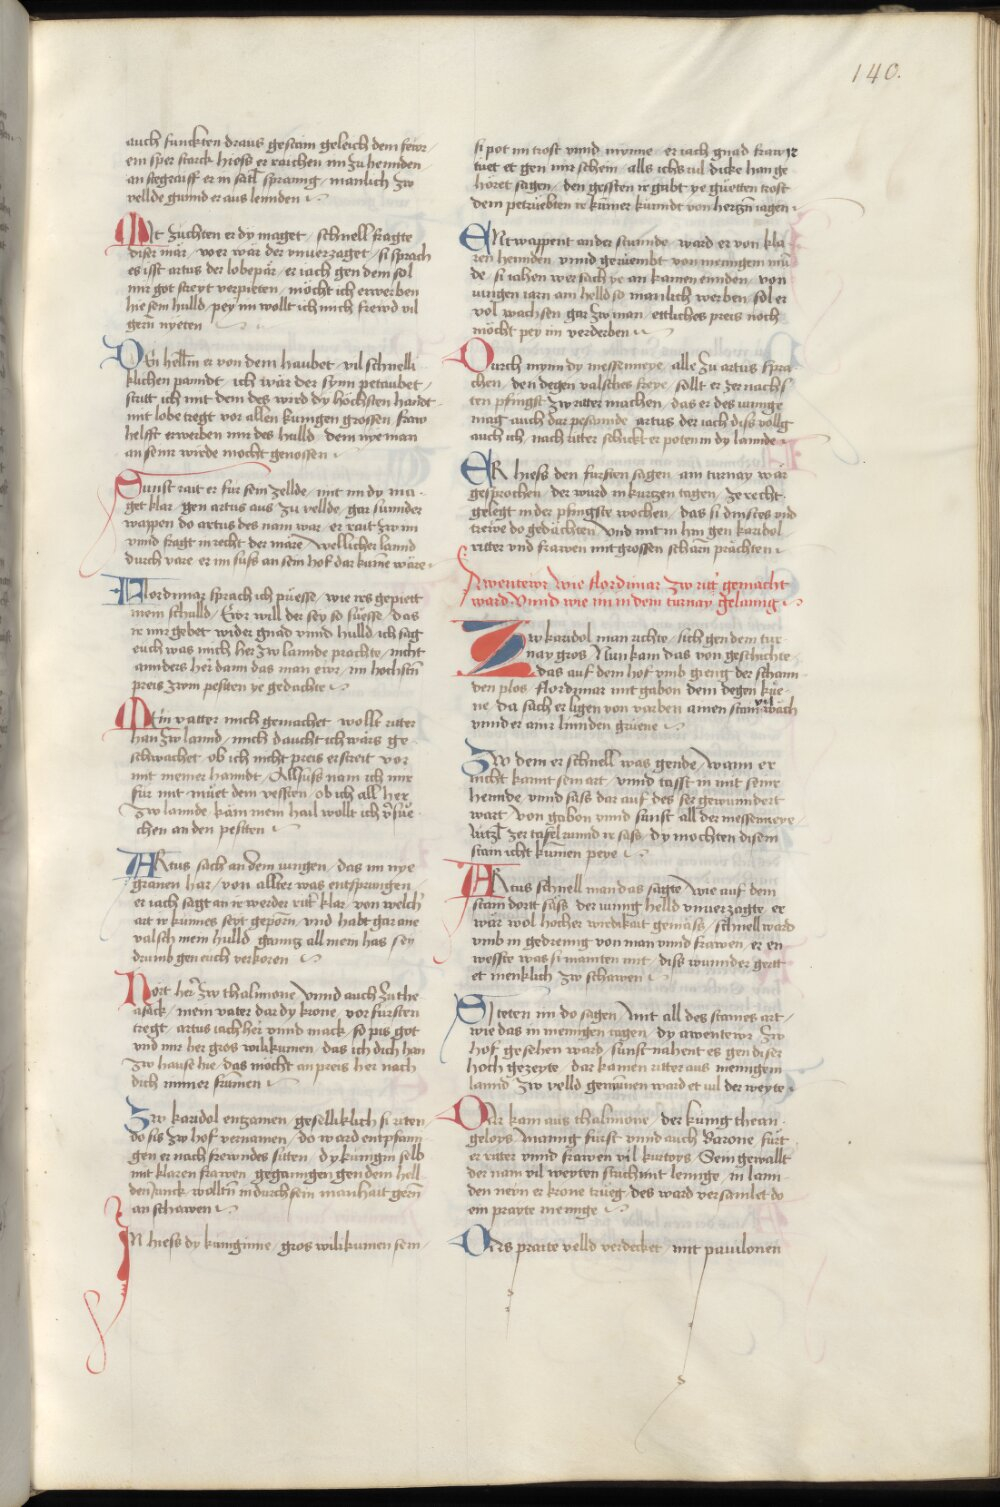 140.
auch funckten draus gestain geleich dem fewr /
ein sper starck hiess er raichen im zu hennden
an stegraiff er in satl spranng / manlich zw
vellde gwind er aus lennden
Mit züchten er dy maget / schnell fragte
diser mär / wer wär der vnuerzaget / si sprach
es isst artus der lobepär / er iach gen dem sol
mir got streyt verpieten / möcht ich erwerben
hie sein hulld / pey im wollt ich mich frewd vil
gern nyeten
Den hellm er von dem haubet / vil schnelli
klichen panndt / ich wär der synn petaubet /
stritt ich mit dem des wird dy höchsten hanndt
mit lobe tregt vor allen kunigen grossen / fraw
helfft erwerben mir des hulld / dem nyeman
an seinr wirde mocht genossen
Sunst rait er für sein zellde / mit im dy ma
get klar / gen artus aus zu vellde / gar sunnder
wappen do artus des nam war / er rait zw im
vnnd fragt in recht der märe / wellicher lannd
durch vare er im suss an sein hof dar kume wäre
Flordimar sprach ich püesse / wie irs gepiett
mein schulld / Ewr will der sey so süesse / das
ir mir gebet wider gnad vnnd hulld / ich sag
euch was mich her zw lannde prachte / nicht
annders her dann das man ewr / im höchstn
preis zwm pesiten ye gedachte
Mein vatter mich gemachet / wollt ritter
han zw lannd / mich daucht ich wärs ge
schwachet / ob ich nicht preis erstreit / vor
mit meiner hanndt / Allsuss nam ich mir
für mit müet dem vessten / ob ich all her
zw lannde / käm mein hail wollt ich vsue
chen an den pesiten
Artus sach an dem iungen / das im nye
granen har / von allter was entsprungen /
er iach sagt an ir werder rittr klar / von welchr
art ir kunnes seyt geporn / vnd habt gar ane
valsch mein hulld / gannz all mein has / sey
drumb gen euch verkoren
Dort her zw thalimone / vnnd auch zu the
asack / mein vater dar dy krone / vor fürsten
tregt / artus iach her vnnd mack / so pis got
vnd mir her gros wilikumen / das ich dich han
zw hause hie / das möcht an preis her nach
dich nimer frümen
Zw karidol entzamen / geselliklich si riten /
do sis zw hof vernamen / do ward entpfann
gen er nach frewndes sitten / dy künigin selb
mit klaren frawen / geganngen gen dem hell
den iunck / wolltn in durch sein manhait gern
an schawen
In hiess dy küniginne / gros wilikumen sein /
si pot im trost vnnd mynne / er iach gnad fraw ir
tuet et gen mir schein / alls ichs vil dicke han ge
höret sagen / den gessten ir gabt ye güetten trost
dem petrüebten ir kumer kunndt von hertzn iagen
Entwappent an der stunnde / ward er von kla
ren hennden / vnnd geruembt von mennigem mu
de / si iahen wer sach ye an kainen ennden / von
iungen iarn ain helld so manlich werben / sol er
vol wachsen gar zw man / ettliches preis noch
möcht pey im verderben
Durch mynn dy messenneye / alle zu artus spra
chen / den degen valsches freye / sollt er zer nachs
ten pfingst zw ritter machen / das er des iunnge
mag auch dar pesannde / artus der iach diss vollg
auch ich / nach ritter schickt er poten in dy lannde
Er hiess den fürsten sagen / ain turnay wär
gesprochen / der ward in kurtzen tagen / ze recht
gelegt in der pfingste wochen / das si dinstes vnd
trewe do gedächten / vnd mit in hin gen karidol
ritter vnd frawen mit grossen scharn prächten
Awentewr wie flordimar zw rittr gemacht
ward / vnnd wie im in dem turnay gelanng
Zw karidol man richte / sich gen dem tur
nay gros / Nun kam das von geschichte /
das auf dem hof vmb gieng der schann
den plos / flordimar mit gabon dem degen küe
ne / da sach er ligen von varben ainen stain wäch
vnnder ainr linnden grüene
Zw dem er schnell was gende / wann er
nicht kannt sein art / vnnd tasst in mit seinr
hennde / vnnd sass dar auf des ser gewunndert
wart / von gabon vnnd sunst all der messenneye /
lützl zer tafelrunnd ir sass / dy mochten disem
stain icht kumen peye
Artus schnell man das sagte / wie auf dem
stain dortt säss / der iunng helld vnuerzagte / er
wär wol hocher wirdikait gemäss / schnell ward
vmb in gedrenng von man vnnd frawen / er en
wesste was si mainten mit / diss wunnder gertt
et menklich zw schawen
Si teten im do sagen / mit all des staines art /
wie das in mennigen tagen / dy awentewr zw
hof gesehen ward / sunst nahent es gen diser
hoch gezeyte / dar kamen ritter aus mennigem
lannd / zw velld gewunen ward et vil der weyte
Dar kam aus thalimone / der kunig thean
geloys / mannig fürst vnnd auch Barone / fürt
er ritter vnnd frawen vil kurtoys / Sein gewallt
der nam vil weyten strich mit lennge / in lann
den newn er krone trueg / des ward versamlet do
ein prayte mennige
Das praite velld verdecket / mit pauilonen